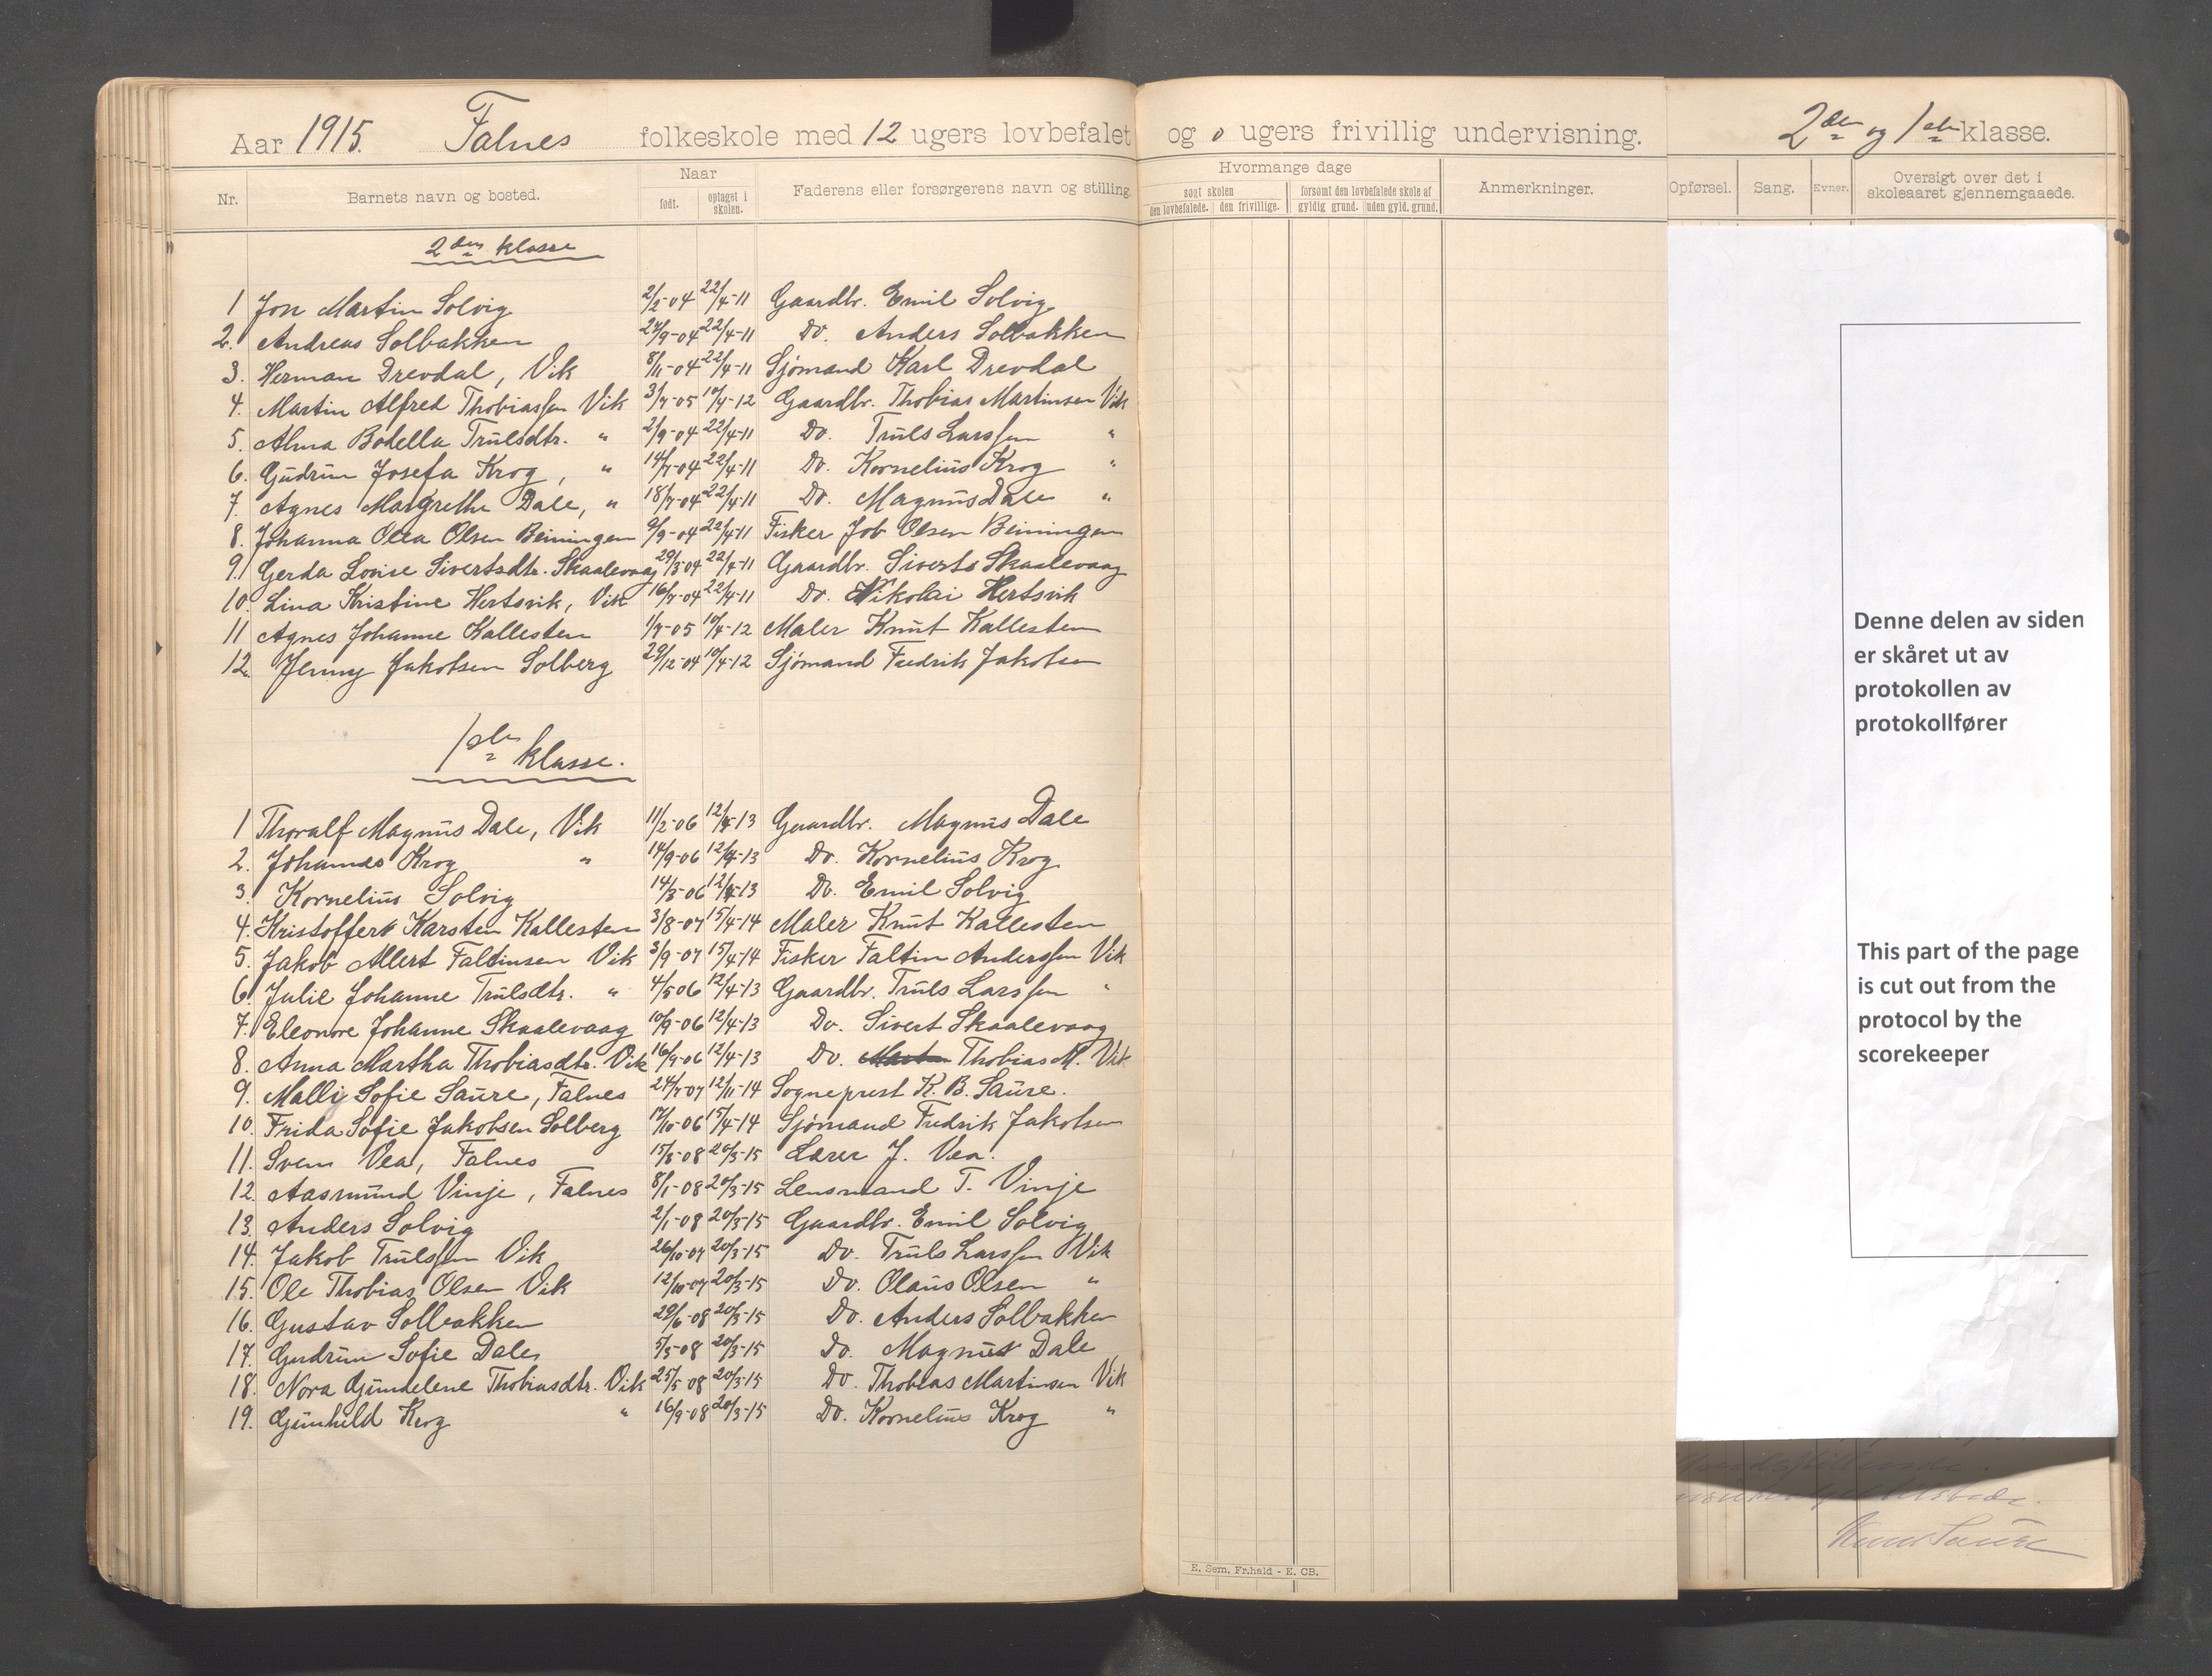 Aar 1915. Falnes folkeskole med 12 ugers lovbefalet og 0 ugers frivillig undervisning. 2den og 1ste klasse.
Nr. Barnets navn og bosted. Naar født. optaget i skolen. Faderens eller forsørgerens navn og stilling. Hvormange dage søgt skolen den lovbefalede. den frivillige. forsømt den lovbefalede skole af gyldig grund. uden gyld. grund. Anmerkninger. Opførsel. Sang. Evner. Oversigt over det i skoleaaret gjennemgaaede.
2den klasse
1 Jon Martin Solvig 2/2-04 22/4-11 Gaardbr. Emil Solvig
2. Andreas Solbakken 24/9-04 22/4-11 Do. Anders Solbakken
3. Herman Drevdal, Vik 8/11-04 22/4-11 Sjømand Karl Drevdal
4. Martin Alfred Thobiassen Vik 3/7-05 10/4-12 Gaardbr. Thobias Martinsen Vik
5. Alma Bodella Trulsdtr. " 2/9-04 22/4-11 Do. Truls Larssen "
6. Gudrun Josefa Krog, " 14/7-04 22/4-11 Do. Kornelius Krog "
7. Agnes Margrethe Dale, " 18/7-04 22/4-11 Do. Magnus Dale "
8. Johanna Olea Olsen Beiningen 9/9-04 22/4-11 Fisker Job Olsen Beiningen
9. Gerda Lovise Sivertsdtr. Skaalevaag 29/3-04 22/4-11 Gaardbr. Siverts Skaalevaag
10. Lina Kristine Hertsvik, Vik 16/7-04 22/4-11 Do. Nikolai Hertsvik
11 Agnes Johanne Kallesten 1/7-05 10/4-12 Maler Knut Kallesten
12. Jenny Jakobsen Solberg 29/12-04 10/4-12 Sjømand Fredrik Jakobsen
1ste klasse.
1 Thoralf Magnus Dale, Vik 11/2-06 12/4-13 Gaardbr. Magnus Dale
2. Johannes Krog " 14/9-06 12/4-13 Do. Kornelius Krog
3. Kornelius Solvig 14/3-06 12/4-13 Do. Emil Solvig
4. Kristoffer Karsten Kallesten 3/8-07 15/4-14 Maler Knut Kallesten
5. Jakob Allert Faltinsen Vik 3/9-07 15/4-14 Fisker Faltin Anderssen Vik
6. Julie Johanne Trulsdtr. " 4/5-06 12/4-13 Gaardbr. Truls Larssen "
7. Eleonore Johanne Skaalevaag 10/9-06 12/4-13 Do. Sivert Skaalevaag
8. Anna Martha Thobiasdtr. Vik 16/9-06 12/4-13 Do. Thobias M. Vik
9. Malli Sofie Saure, Falnes 24/7-07 12/11-14 Sogneprest K. B. Saure.
10. Frida Sofie Jakobsen Solberg 17/10-06 15/4-14 Sjømand Fredrik Jakobsen
11. Sven Vea, Falnes 15/8-08 20/3-15 Lærer J. Vea.
12. Aasmund Vinje, Falnes 8/1-08 20/3-15 Lensmand T. Vinje
13. Anders Solvig 2/1-08 20/3-15 Gaardbr. Emil Solvig
14. Jakob Trulssen Vik 26/10-07 20/3-15 Do. Truls Larssen Vik
15. Ole Thobias Olsen Vik 12/10-07 20/3-15 Do. Olaus Olsen "
16. Gustav Solbakken 29/6-08 20/3-15 Do. Anders Solbakken
17. Gudrun Sofie Dale 5/5-08 20/3-15 Do. Magnus Dale
18. Nora Gundelene Thobiasdtr. Vik 25/5-08 20/3-15 Do. Thobias Martinsen Vik
19. Gunhild Krog " 16/9-08 20/3-15 Do. Kornelius Krog "
Denne delen av siden
er skåret ut av
protokollen av
protokollfører
This part of the page
is cut out from the
protocol by the
scorekeeper
E. Sem. Fr.hald - E. CB.